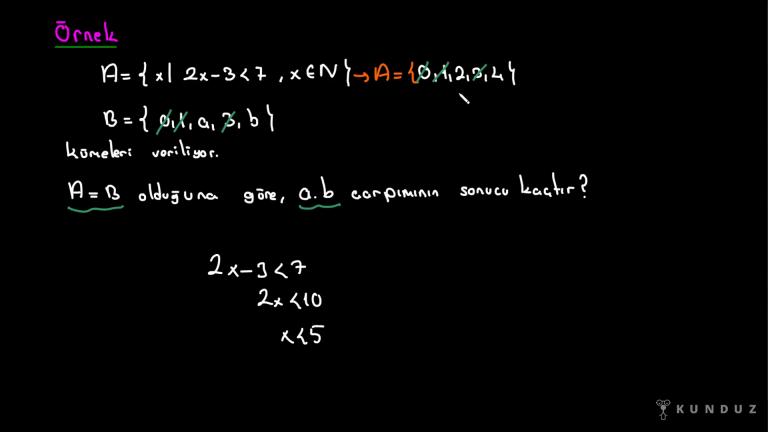 Örnek
A = { x | 2x-3<7 , x∈N } → A = {0,1,2,3,4}
B = { 0,1, a, 3, b }
kümeleri veriliyor.
A = B olduğuna göre, a.b çarpımının sonucu kaçtır?
2x-3<7
2x<10
x<5
KUNDUZ